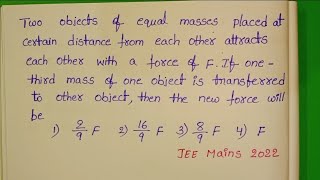 Two objects of equal masses placed at
certain distance from each other attracts
each other with a force of F. If one-
third mass of one object is transferred
to other object, then the new force will
be
1) 2/9 F 2) 16/9 F 3) 8/9 F 4) F
JEE Mains 2022